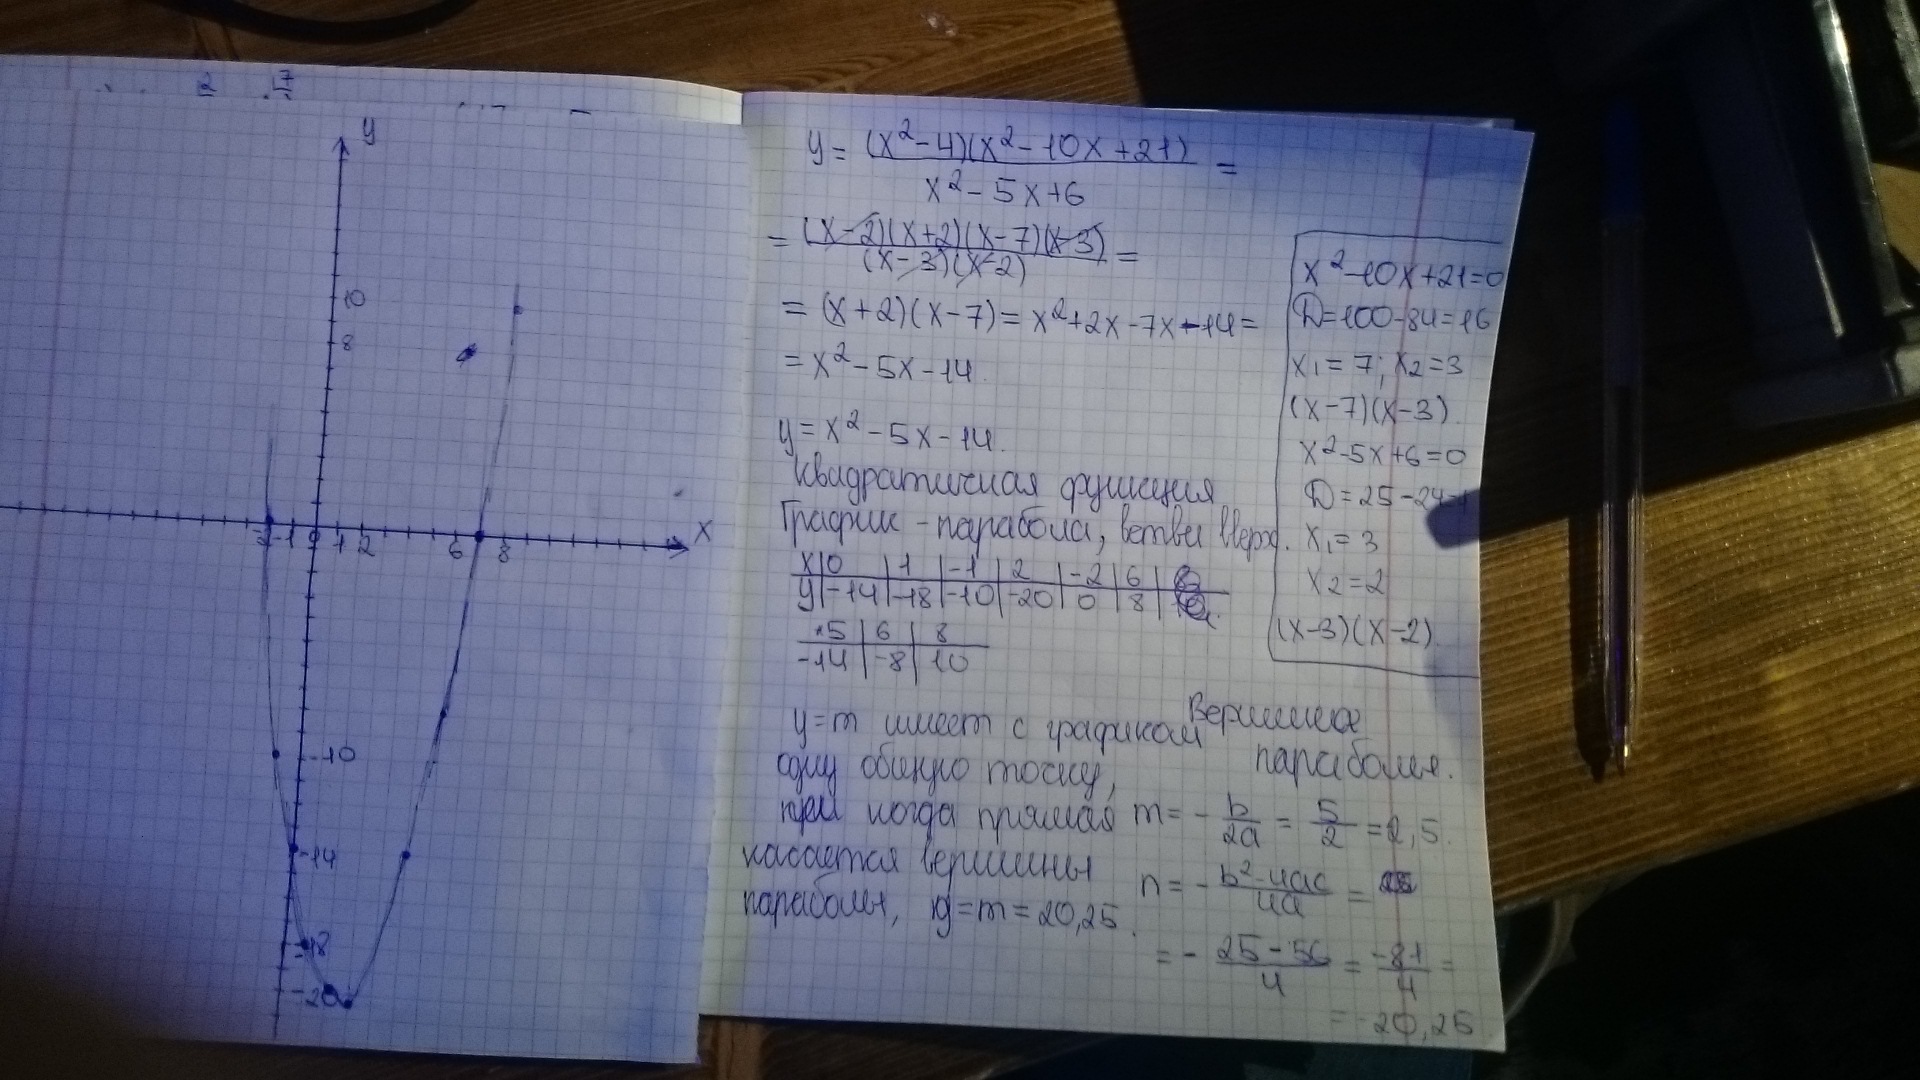 2 7
y
10
8
-2 -1 0 1 2 6 8 x
-10
-14
-18
-20
y = (x²-4)(x²-10x+21) =
x²-5x+6
= (x-2)(x+2)(x-7)(x-3) =
(x-3)(x-2)
= (x+2)(x-7) = x²+2x-7x-14 =
= x²-5x-14.
y = x²-5x-14.
квадратичная функция
График - парабола, ветви вверх.
x 0 1 -1 2 -2 6
y -14 -18 -10 -20 0 8
5 6 8
-14 -8 10
y=m имеет с графиком
одну общую точку,
когда прямая
касается вершины
параболы, y=m=20,25.
x²-10x+21=0
D=100-84=16
x₁=7; x₂=3
(x-7)(x-3).
x²-5x+6=0
D=25-24=1
x₁=3
x₂=2
(x-3)(x-2).
Вершина
параболы.
m = -b/2a = 5/2 = 2,5.
n = -b²-4ac/4a =
= -25-56/4 = -81/4 =
= -20,25